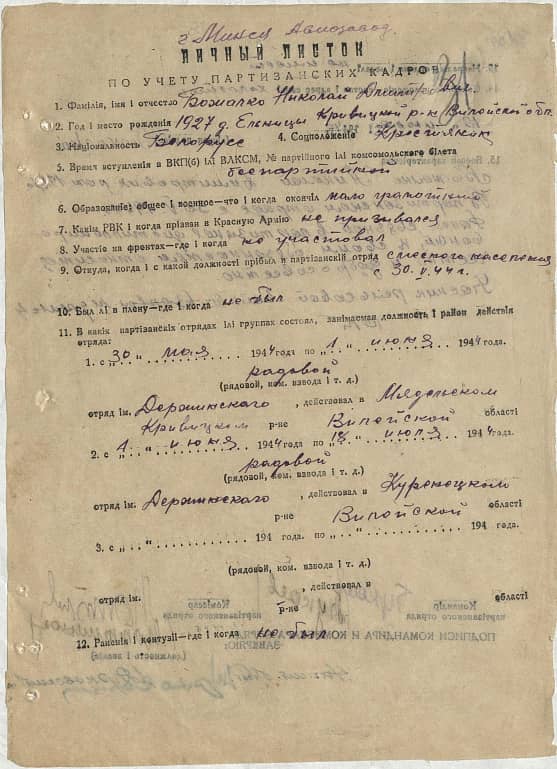 г. Минск Авиозавод.
ЛИЧНЫЙ ЛИСТОК
ПО УЧЕТУ ПАРТИЗАНСКИХ КАДРОВ
1. Фамілія, імя і отчество Божалко Николай Дмитрович
2. Год і место рождения 1927 г. Ельницы Кривицкий р-н Вилойской обл.
3. Національность Белорусс 4. Соцположеніе Крестіянин
5. Время вступленія в ВКП(б) ілі ВЛКСМ, № партійного ілі комсомольского білета
безпартийной
6. Образованіе: общее і военное—что і когда окончіл мало грамотный
7. Какім РВК і когда прізван в Красную Армію не призывался
8. Участіе на фронтах—где і когда не участовал
9. Откуда, когда і с какой должності прібыл в партізанскій отряд с местного населения
с 30.V.44 г.
10. Был лі в плену—где і когда не был
11. В какіх партізанскіх отрядах ілі группах состоял, занімаемая должность і район действія
отряда:
1. с „30„ мая 1944 года по „1„ июня 1944 года.
радовой
(рядовой, ком. взвода і т. д.)
отряд ім. Держинского, действовал в Мядельском
Кривицком р-не Вилойской області
2. с „1„ июня 1944 года по „18„ июля 1944 года.
радовой
(рядовой, ком. взвода і т. д.)
отряд ім. Держинского, действовал в Куренецком
р-не Вилойской області
3. с „..„ 194 года. по „..„ 194 года.
(рядовой, ком. взвода і т. д.)
отряд ім. , действовал в
р-не області
12. Раненія і контузіі—где і когда не был